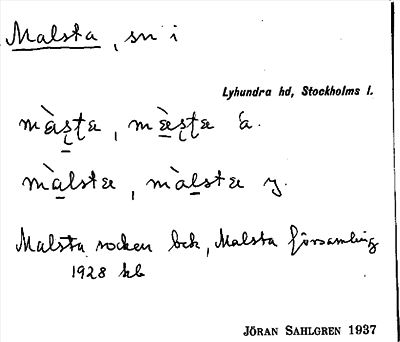 Malsta, sn i
Lyhundra hd, Stockholms l.
màs̱ʈa, mæ̀s̱ʈa ä.
màḻsta, màḻsta y.
Malsta socken bck, Malsta församling
1928 kb
JÖRAN SAHLGREN 1937